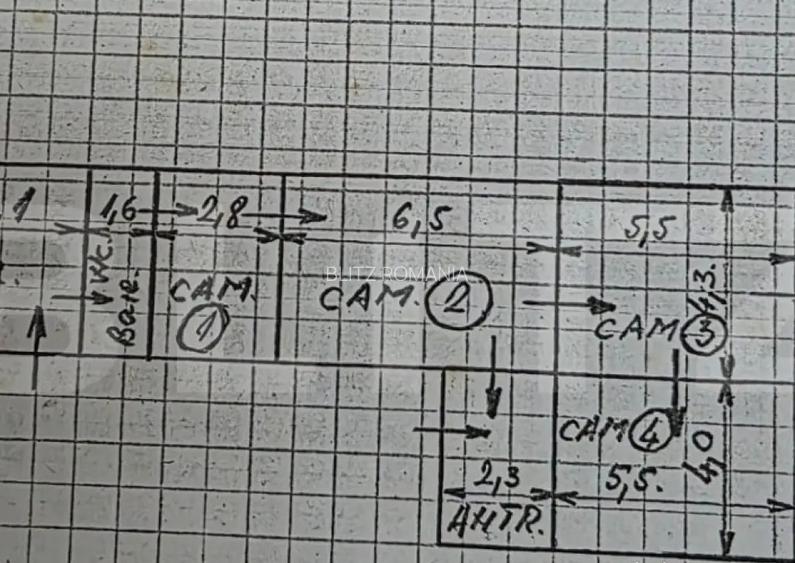 1
1,6
2,8
6,5
5,5
WC.
Ван.
CAM.
1
BLITZ ROMANIA
CAM.
2
CAM
3
4,3.
CAM
4
4,0
2,3
5,5.
AHTR.